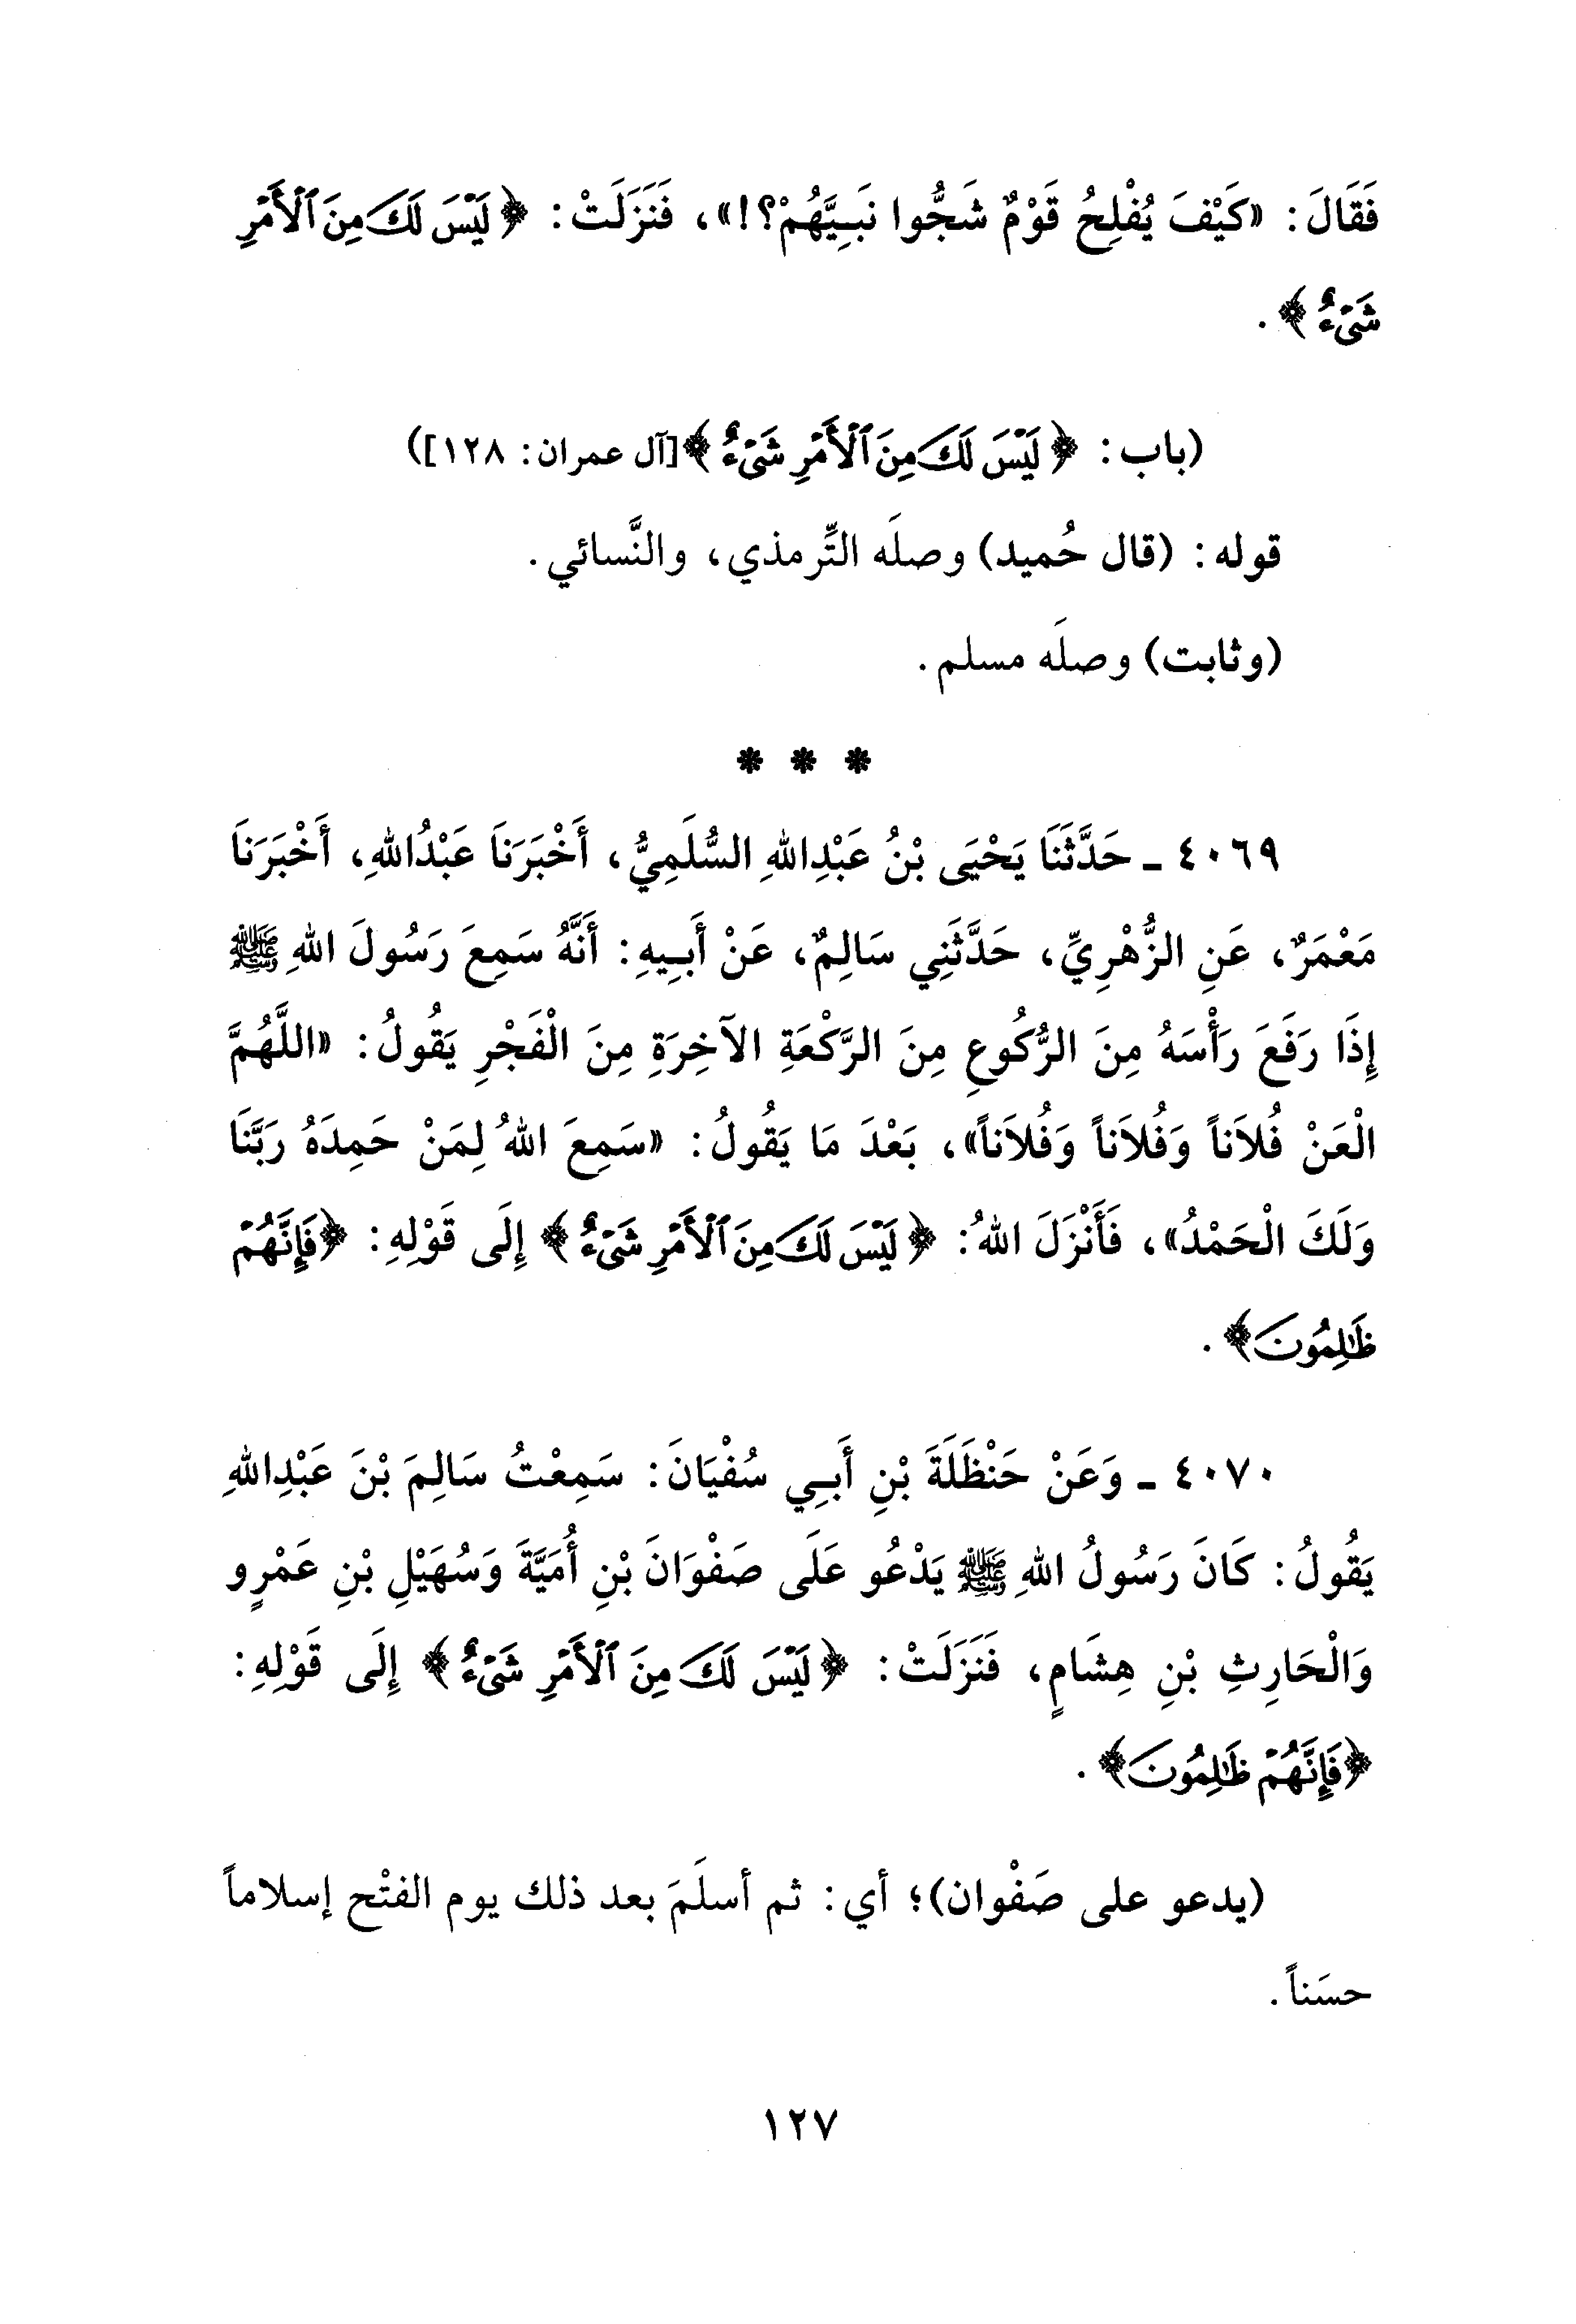 فَقَالَ: «كَيْفَ يُفْلِحُ قَوْمٌ شَجُّوا نَبِيَّهُمْ؟!»، فَنَزَلَتْ: ﴿لَيْسَ لَكَ مِنَ ٱلْأَمْرِ
شَيْءٌ﴾.
(باب: ﴿لَيْسَ لَكَ مِنَ ٱلْأَمْرِ شَيْءٌ﴾[آل عمران: ١٢٨])
قوله: (قال حُميد) وصلَه التِّرمذي، والنَّسائي.
(وثابت) وصلَه مسلم.
* * *
٤٠٦٩ ـ حَدَّثَنَا يَحْيَى بْنُ عَبْدِاللهِ السُّلَمِيُّ، أَخْبَرَنَا عَبْدُاللهِ، أَخْبَرَنَا
مَعْمَرٌ، عَنِ الزُّهْرِيِّ، حَدَّثَنِي سَالِمٌ، عَنْ أَبِيهِ: أَنَّهُ سَمِعَ رَسُولَ اللهِ ﷺ
إِذَا رَفَعَ رَأْسَهُ مِنَ الرُّكُوعِ مِنَ الرَّكْعَةِ الآخِرَةِ مِنَ الْفَجْرِ يَقُولُ: «اللَّهُمَّ
الْعَنْ فُلاَناً وَفُلاَناً وَفُلاَناً»، بَعْدَ مَا يَقُولُ: «سَمِعَ اللهُ لِمَنْ حَمِدَهُ رَبَّنَا
وَلَكَ الْحَمْدُ»، فَأَنْزَلَ اللهُ: ﴿لَيْسَ لَكَ مِنَ ٱلْأَمْرِ شَيْءٌ﴾ إِلَى قَوْلِهِ: ﴿فَإِنَّهُمْ
ظَٰلِمُونَ﴾.
٤٠٧٠ ـ وَعَنْ حَنْظَلَةَ بْنِ أَبِي سُفْيَانَ: سَمِعْتُ سَالِمَ بْنَ عَبْدِاللهِ
يَقُولُ: كَانَ رَسُولُ اللهِ ﷺ يَدْعُو عَلَى صَفْوَانَ بْنِ أُمَيَّةَ وَسُهَيْلِ بْنِ عَمْرٍو
وَالْحَارِثِ بْنِ هِشَامٍ، فَنَزَلَتْ: ﴿لَيْسَ لَكَ مِنَ ٱلْأَمْرِ شَيْءٌ﴾ إِلَى قَوْلِهِ:
﴿فَإِنَّهُمْ ظَٰلِمُونَ﴾.
(يدعو على صَفْوان)؛ أي: ثم أسلَمَ بعد ذلك يوم الفتْح إسلاماً
حسَناً.
١٢٧